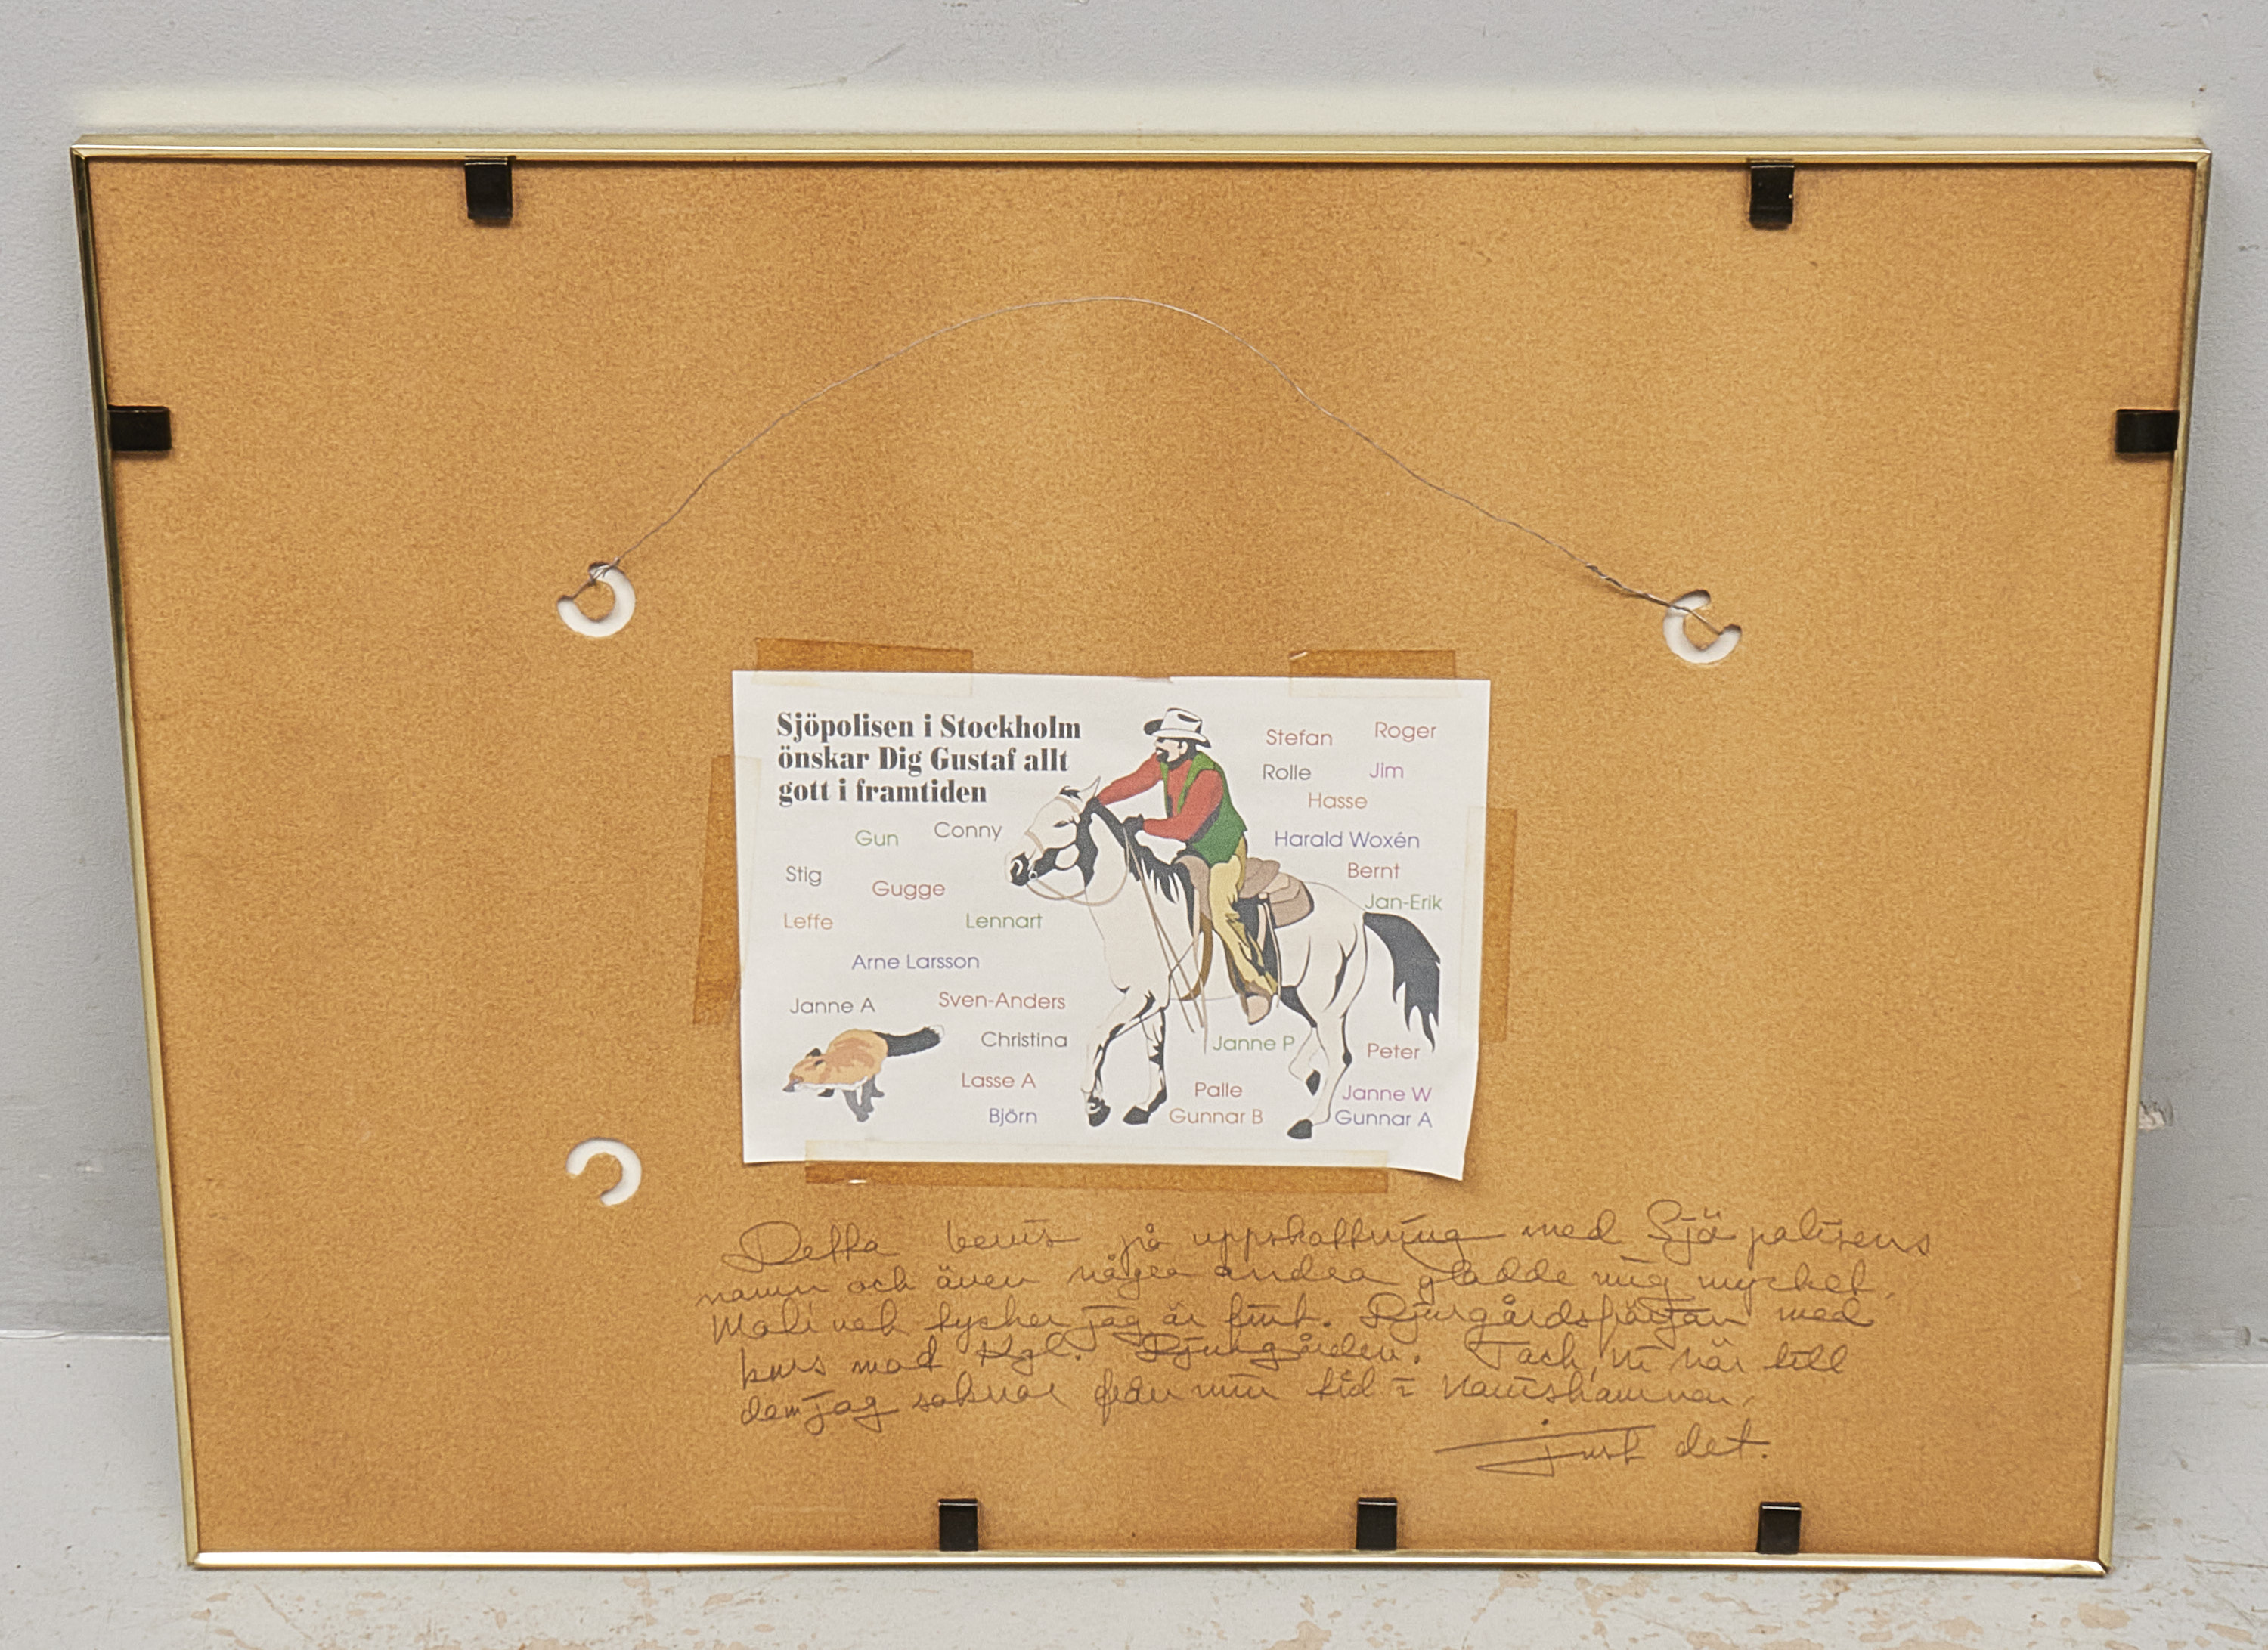 Sjöpolisen i Stockholm
önskar Dig Gustaf allt
gott i framtiden
Gun Conny
Stig
Gugge
Leffe Lennart
Arne Larsson
Janne A Sven-Anders
Christina
Lasse A
Björn
Stefan Roger
Rolle Jim
Hasse
Harald Woxén
Bernt
Jan-Erik
Janne P Peter
Palle Janne W
Gunnar B Gunnar A
Detta bevis på uppskattning med Sjöpolisens
namn och även några andra gladde mig mycket.
Motivet tycker jag är fint. Djurgårdsfärjan med
kurs mot Kgl. Djurgården. Tack, ni när till
dem jag saknar från min tid i
just det.